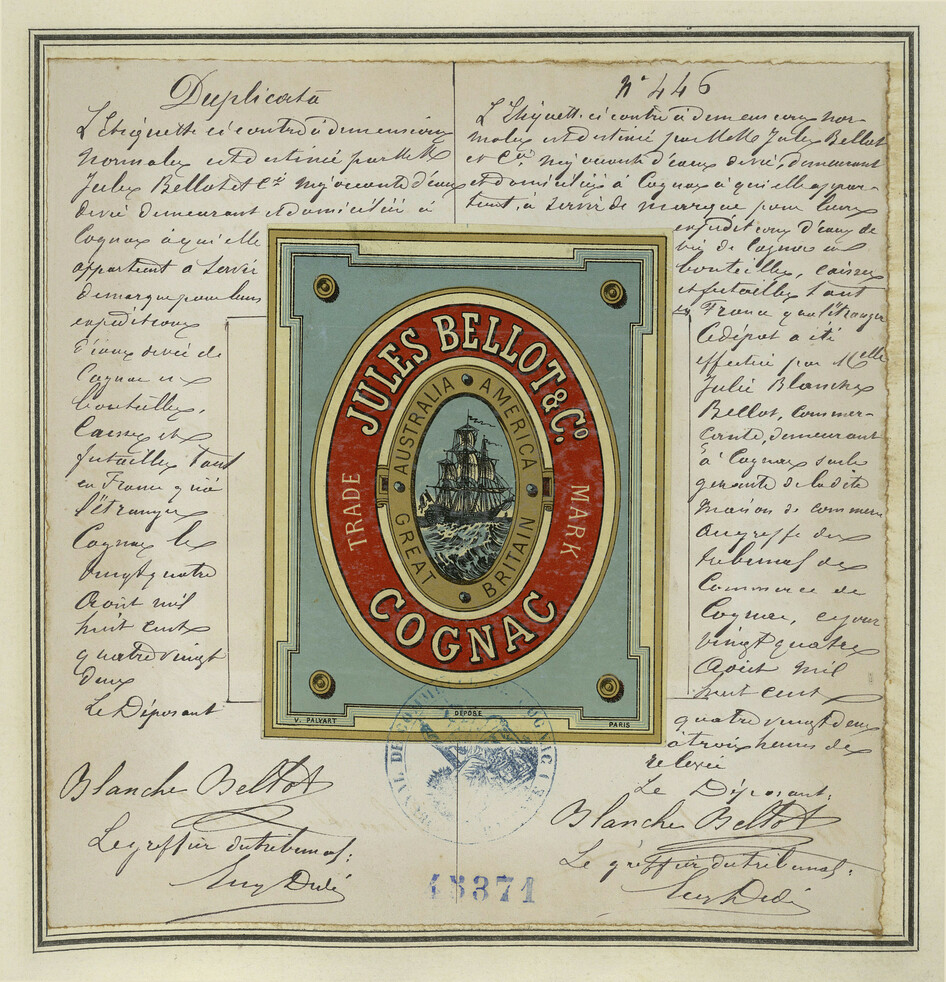 Duplicata
L'Etiquette ci contre à dimensions
normales est destinée par MM
Jules Bellot et Cie négociants d'eaux
de vie demeurant et domiciliés à
Cognac à qui elle
appartient à servir
de marque pour leurs
expéditions
d'eaux de vie de
Cognac en
bouteilles,
Caisses et
futailles tant
en France qu'à
l'étranger
Cognac le
vingt quatre
Août mil
huit cent
quatre vingt
deux
Le Déposant
Blanche Bellot
Le greffier du tribunal:
n° 446
L'Etiquette ci contre à dimensions nor-
males est destinée par MM. Jules Bellot
et Cie, négociants d'eaux de vie, demeurant
et domiciliés à Cognac à qui elle appar-
tient, à servir de marque pour leurs
expéditions d'eaux de
vie de Cognac en
bouteilles, caisses
et futailles tant
en France qu'à l'étranger
Le dépôt a été
effectué par Melle
Julie Blanche
Bellot, Commer-
çante, demeurant
à Cognac seule
gérante de la dite
maison de commerce
au greffe du
tribunal de
Commerce de
Cognac, ce jour
vingt quatre
Août mil
huit cent
quatre vingt deux
à trois heures de
relevée
Le Déposant:
Blanche Bellot
Le greffier du tribunal:
JULES BELLOT & Co.
TRADE MARK
COGNAC
AUSTRALIA
AMERICA
GREAT
BRITAIN
V. PALYART
DÉPOSÉ
PARIS
45371